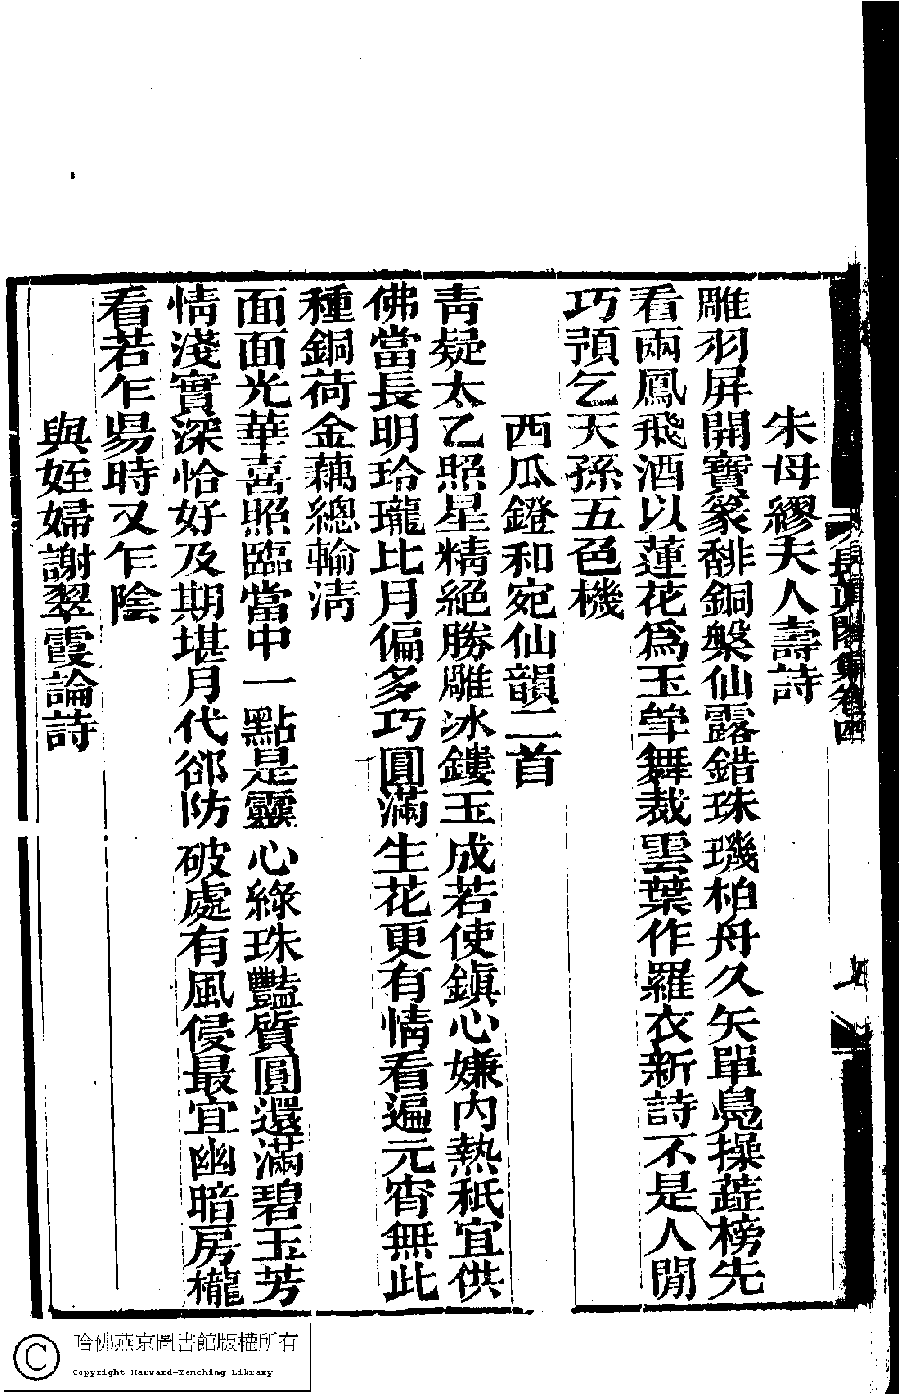 朱母繆夫人壽詩
雕羽屏開寶篆馡銅槃仙露錯珠璣柏舟久矢單鳧操蘂榜先
看兩鳳飛酒以蓮花爲玉斝舞裁雲葉作羅衣新詩不是人閒
巧預乞天孫五色機
西瓜鐙和宛仙韻二首
靑疑太乙照星精絕勝雕冰鏤玉成若使鎭心嫌內熱秖宜供
佛當長明玲瓏比月偏多巧圓滿生花更有情看遍元宵無此
種銅荷金藕總輸淸
面面光華喜照臨當中一點是靈心綠珠豔質圓還滿碧玉芳
情淺實深恰好及期堪月代郤防破處有風侵最宜幽暗房櫳
看若乍昜時又乍陰
與姪婦謝翠霞論詩
長眞閣集卷四
哈佛燕京圖書館版權所有
Copyright Harvard-Yenching Library